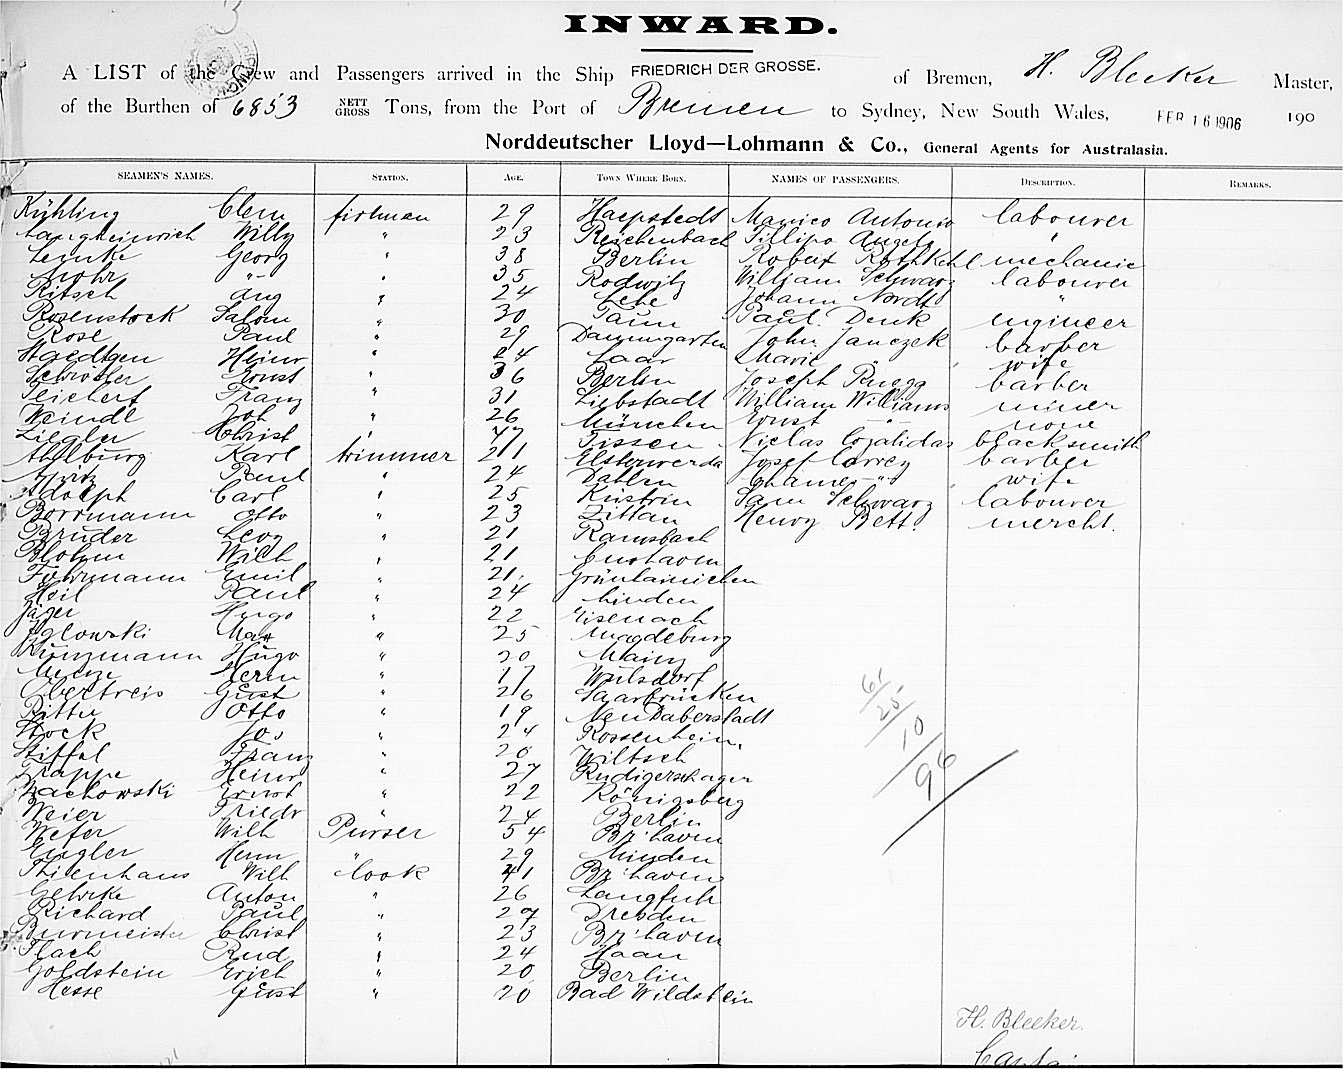 INWARD.
A LIST of the Crew and Passengers arrived in the Ship FRIEDRICH DER GROSSE. of Bremen, H. Bleeker Master,
of the Burthen of 6853 NETT GROSS Tons, from the Port of Bremen to Sydney, New South Wales, FEB 16 1906 190
Norddeutscher Lloyd—Lohmann & Co., General Agents for Australasia.
SEAMEN'S NAMES. STATION. AGE. TOWN WHERE BORN. NAMES OF PASSENGERS. DESCRIPTION. REMARKS.
Kühling Clem fireman 29 Harpstedt Manico Antonio labourer
Langheinrich Willy " 23 Reichenbach Fillipo Angel "
Lemke Georg " 38 Berlin Robert Rothkehl mechanic
Mohr " 35 Rodwitz William Schwarz labourer
Ritsch Aug " 24 Lehe Johann Nordt "
Rosenstock Salom " 30 Paul Denk engineer
Rose Paul " 29 Baumgarten John Janczek barber
Haedtgen Heinr " 24 Laar Marie wife
Schröder Ernst " 36 Berlin Joseph Ruegg barber
Teichert Franz " 31 Liebstadt William Williams miner
Weindl Joh " 26 München Ernst none
Ziegler Christ " 47 Tissen Niclas blacksmith
Ahlburg Karl trimmer 21 Elsterwerda Josef barber
Paul " 24 Dahlen wife
Adolph Carl " 25 Küstrin Sam Schwarz labourer
Borrmann Otto " 23 Zittau Henry Bett mercht.
Bruder Leog " 21 Ramsbach
Blohm Wilh " 21 Cuxhaven
Fuhrmann Emil " 21. Grünhainichen
Heil Paul " 24 Linden
Jäger Hugo " 22 Eisenach
Iglowski Max " 25 Magdeburg
Kunzmann Hugo " 20 Mainz
Menze Herm " 17 Wulsdorf
Obertreis Gust " 26 Saarbrücken
Ritter Otto " 19 Neu Daberstadt
Stock Jos " 24 Rossenheim.
Stiffel Franz " 20 Wiltsch
Trappe Heinr " 27 Rudigershagen
Wachowski Ernst " 22 Königsberg
Weier Friedr " 24 Berlin
Wefer Wilh Purser 54 Br'haven
Engler Herm " 29 Minden
Thienhaus Wilh Cook 41 Br'haven
Gehrke Anton " 26 Langfuhr
Richard Paul " 27 Dresden
Burmeister Christ " 23 Br'haven
Flach Rud " 24 Haan
Goldstein Erich " 20 Berlin
Hesse Gust " 20 Bad Wildstein
61
25
10
96
H. Bleeker.
Captain